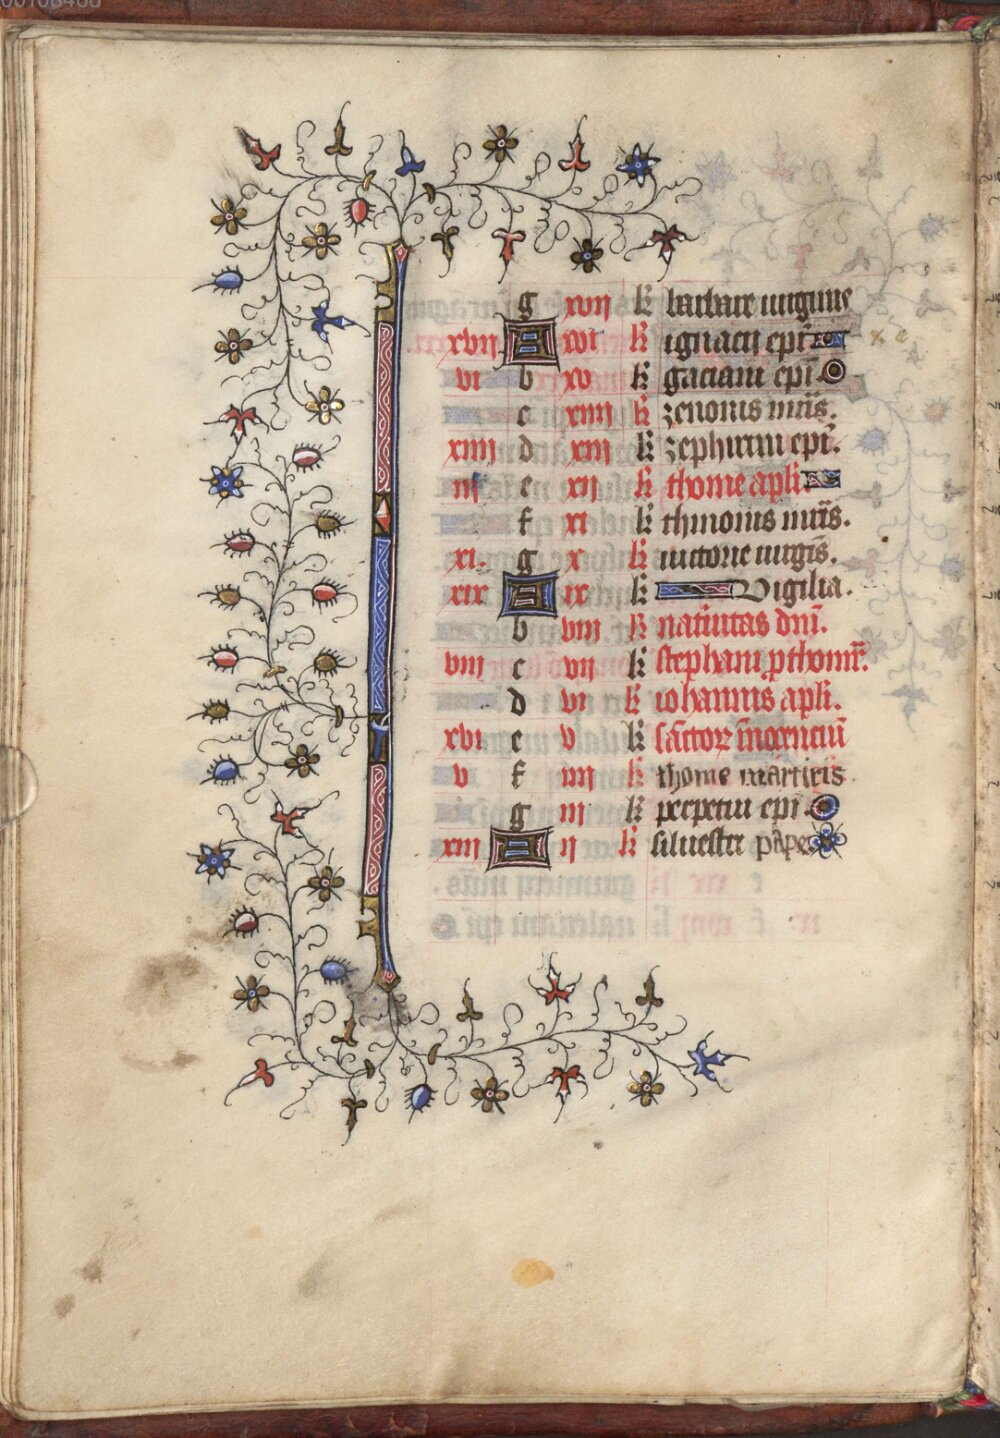 g xvij kl barbare uirginis
xvij A xvi kl ignacij epi
vi b xv kl gaciani epi
c xiiij kl zenonis mris.
xiiij d xiij kl zephirini epi.
iij e xij kl thome apli
f xi kl thimonis mris.
xi. g x kl uictorie uirgis.
xix A ix kl Vigilia.
b viij kl natiuitas dni.
viij c vij kl stephani pthomr.
d vi kl iohannis apli.
xvi e v kl sctor innocnciu
v f iiij kl thome martiris
g iij kl perpetui epi
xiij A ij kl siluestri pape